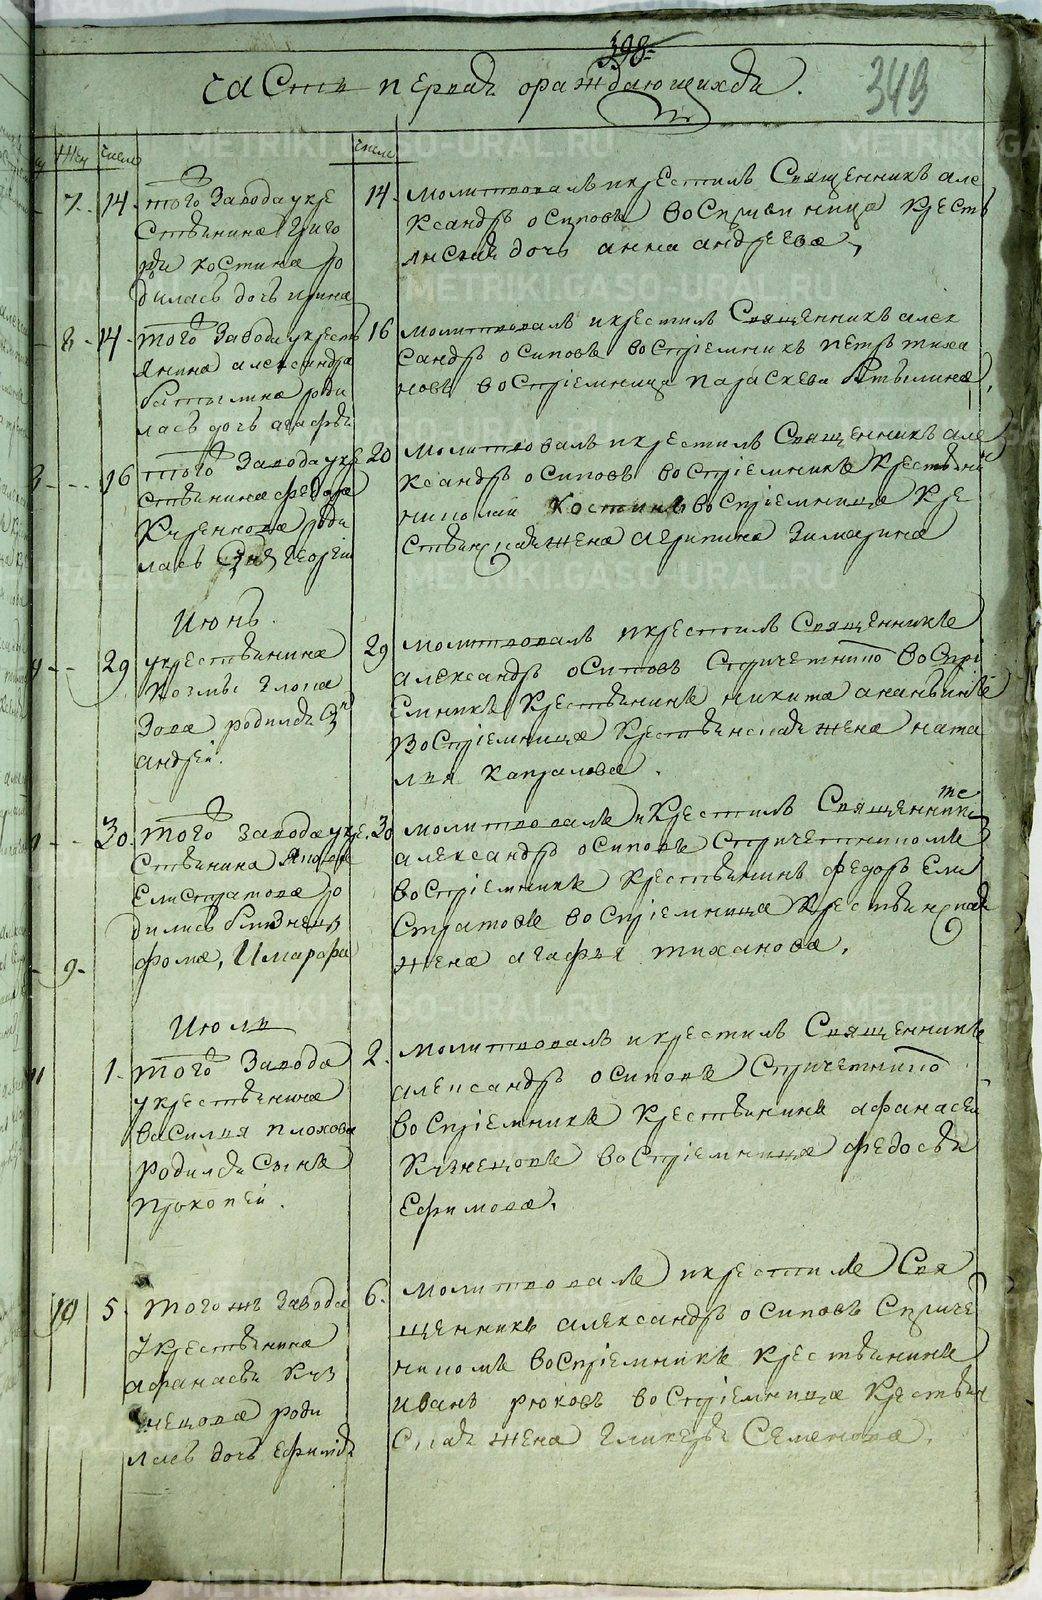 398
349
часть первая о раждающихся.
Жен числ числ
7. 14. того завода у кре
стьянина григо
рья костина ро
дилась дочь ирина
14. молитвовалъ и крестилъ Священникъ але
ксандръ осиповъ воспріемница кресть
янская дочь анна андреева,
8. 14. того завода у кресть
янина александра
батылина роди
лась дочь агафья
16 молитвовалъ и крестилъ Священникъ алек
сандръ осиповъ воспріемникъ петръ тиха
новъ воспріемница параскева батылина,
16 того завода у кре
стьянина федора
роди
лась Сынъ георгій
20 молитвовалъ и крестилъ Священникъ але
ксандръ осиповъ воспріемникъ крестьянинъ
николай костинъ воспріемница кре
стьянская жена агрипина
Июнь.
29 у крестьянина
козмы глота
зова родился Сынъ
андрей.
29 молитвовалъ и крестилъ Священникъ
александръ осиповъ Спричетнико воспрі
емникъ крестьянинъ никита ананьинъ
воспріемница крестьянская жена ната
лия капралова.
30. того завода у кре
стьянина якова
Елистратова ро
дились близнецы
фома, и марфа
9
30 молитвовалъ и крестилъ Священникъ тс
александръ осиповъ Спричетникомъ
воспріемникъ крестьянинъ федоръ Ели
стратовъ воспріемница крестьянская
жена агафья тиханова.
Июль
1. того завода
у крестьянина
василия плохова
родился сынъ
прокопей.
2. молитвовалъ и крестилъ Священникъ
александръ осиповъ Спричетнико
воспріемникъ крестьянинъ афанасей
кузнецовъ воспріемница федосья
Ефимова.
10 5. того жъ завода
у крестьянина
афанасья куз
нецова роди
лась дочь ефимія
6. молитвовалъ и крестилъ Свя
щенникъ александръ осиповъ Спричет
никомъ воспріемникъ крестьянинъ
иванъ рюковъ воспріемница крестьян
ская жена гликерья Семенова.
METRIKI.GASO-URAL.RU